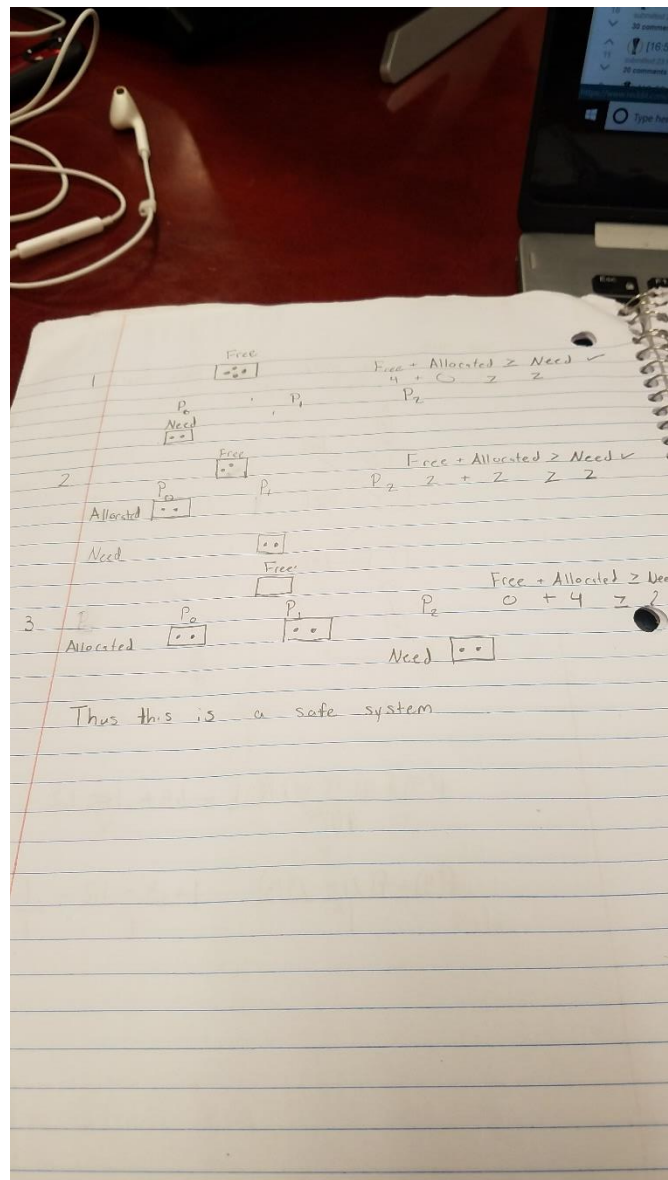 30 comme
[16:5
20 comments
Type he
Esc
Free
1
Free + Allocated ≥ Need ✓
4 + 0 ≥ 2
P₀ P₁ P₂
Need
Free
Free + Allocated ≥ Need ✓
2
P₀ P₁ P₂ 2 + 2 ≥ 2
Allocated
Need
Free
Free + Allocated ≥ Nee
3
P₀ P₁ P₂ 0 + 4 ≥ 2
Allocated
Need
Thus this is a safe system